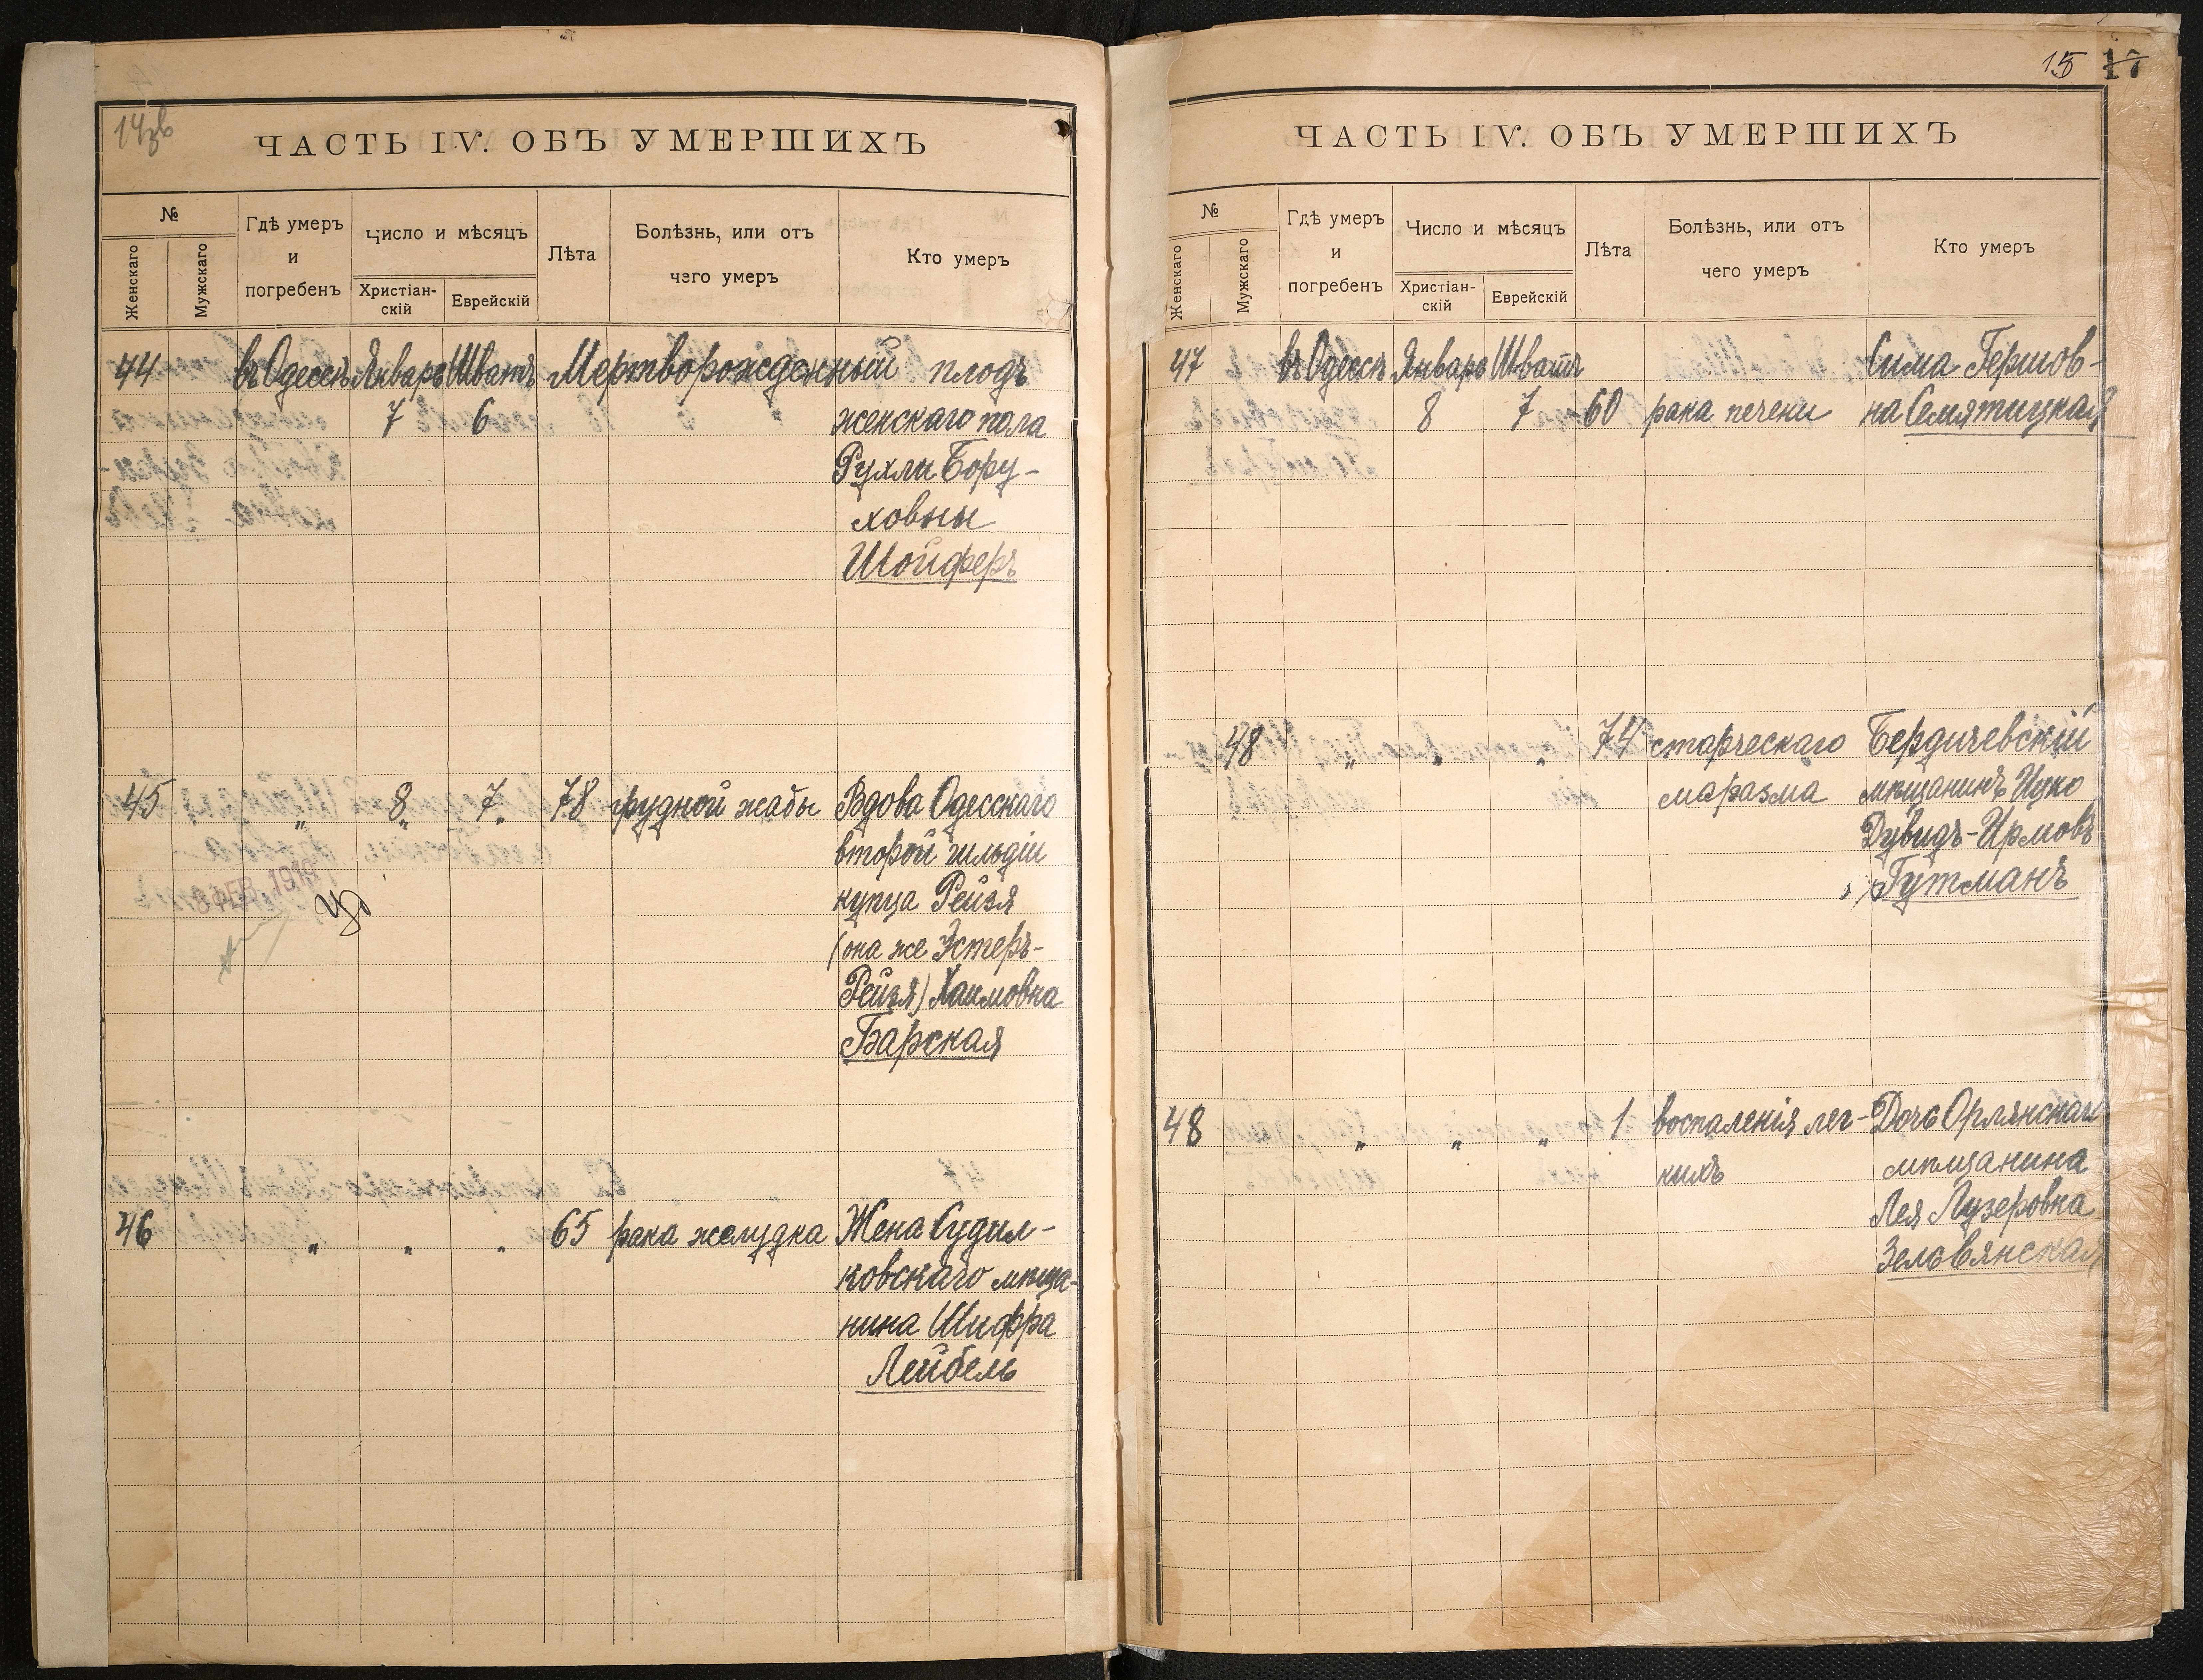 14зв
ЧАСТЬ IV. ОБЪ УМЕРШИХЪ
№
Женскаго
Мужскаго
Гдѣ умеръ
и
погребенъ
Число и мѣсяцъ
Христіан-
скій
Еврейскій
Лѣта
Болѣзнь, или отъ
чего умеръ
Кто умеръ
44 въ Одессѣ Январь Шватъ Мертворожденный плодъ
7 6 женскаго пола
Рухли Бору-
ховны
Шойферъ
45 „ 8„ 7„ 78 грудной жабы Вдова Одесскаго
второй гильдіи
купца Рейзя
(она же Эстеръ-
Рейзя) Хаимовна
Барская
46 „ „ „ 65 рака желудка Жена Судил-
ковскаго мѣща-
нина Шифра
Лейбель
15 17
ЧАСТЬ IV. ОБЪ УМЕРШИХЪ
№
Женскаго
Мужскаго
Гдѣ умеръ
и
погребенъ
Число и мѣсяцъ
Христіан-
скій
Еврейскій
Лѣта
Болѣзнь, или отъ
чего умеръ
Кто умеръ
47 въ Одессѣ Январь Шватъ Сима Гершов-
8 7 60 рака печени на Семятицкая
48 „ „ „ 74 старческаго Бердичевскій
маразма мѣщанинъ Ицко
Дувидъ-Ирмовъ
Гутманъ
48 „ „ „ 1 воспаленія лег- Дочь Орлянскаго
кихъ мѣщанина
Лея Лузеровна
Зельвянская